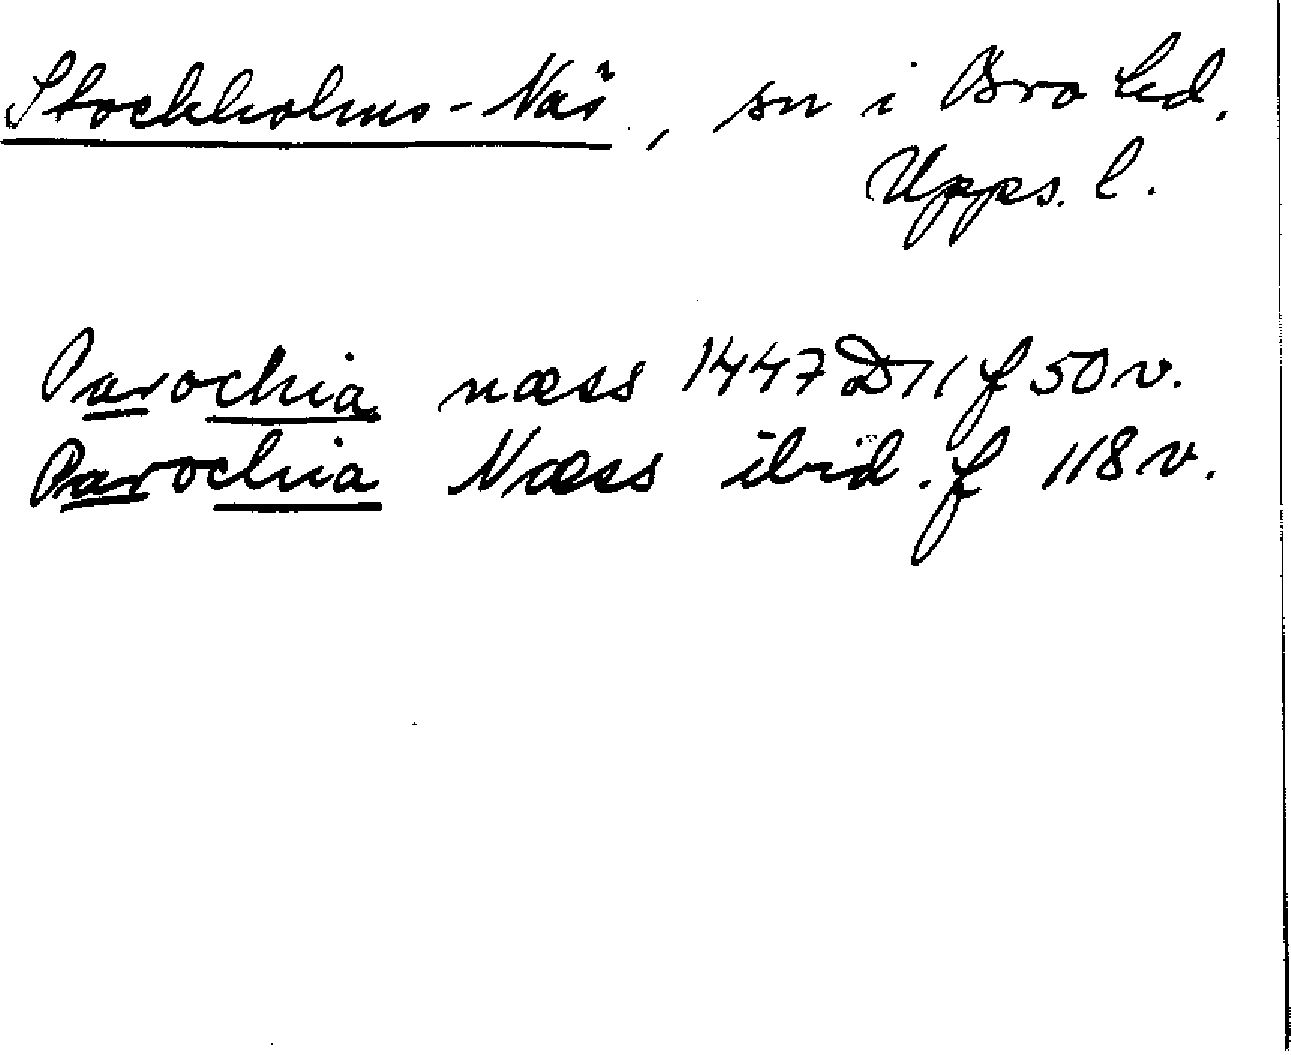 Stockholms-Näs, sn i Bro hd.
Upps. l.
Parochia næss 1447 D 11 f 50 v.
Parochia Næss ibid. f 118 v.